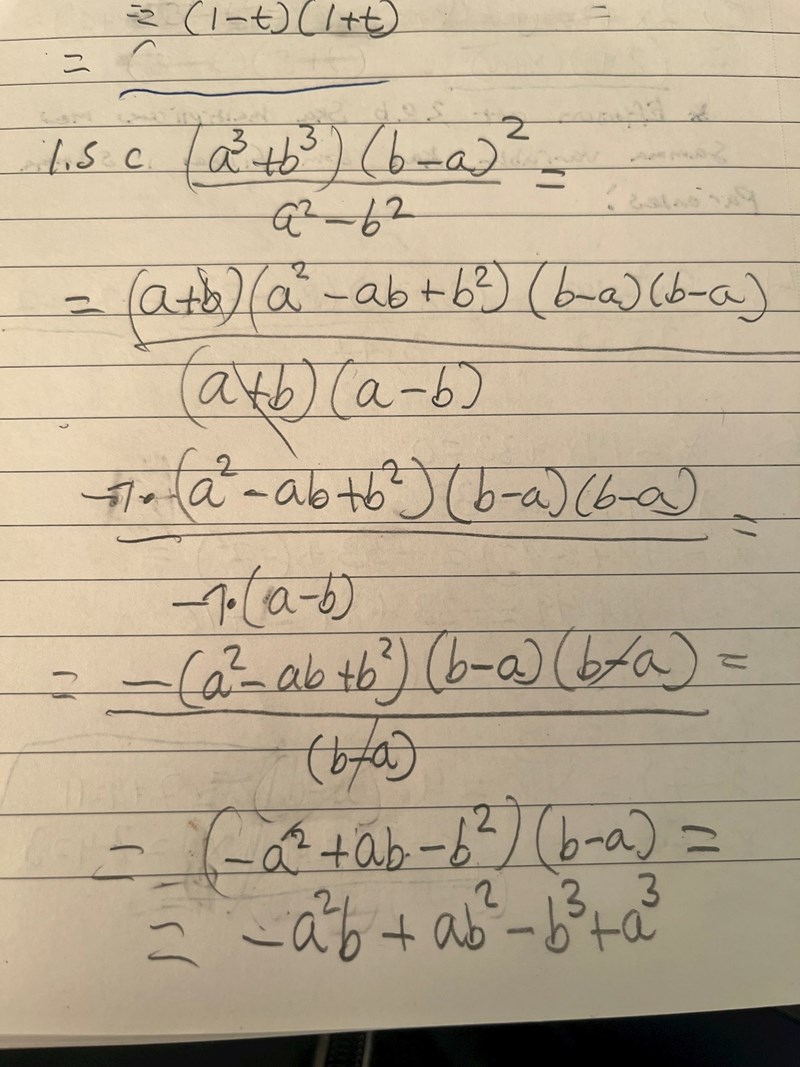 = (1-t)(1+t) =
= (
1.5 c (a³+b³)(b-a)² =
a²-b²
= (a+b)(a²-ab+b²)(b-a)(b-a)
(a+b)(a-b)
-1·(a²-ab+b²)(b-a)(b-a) =
-1·(a-b)
= -(a²-ab+b²)(b-a)(b-a) =
(b-a)
= (-a²+ab-b²)(b-a) =
= -a²b+ab²-b³+a³